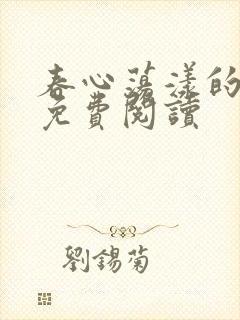 春心蕩漾的
免費閱讀
劉錫菊